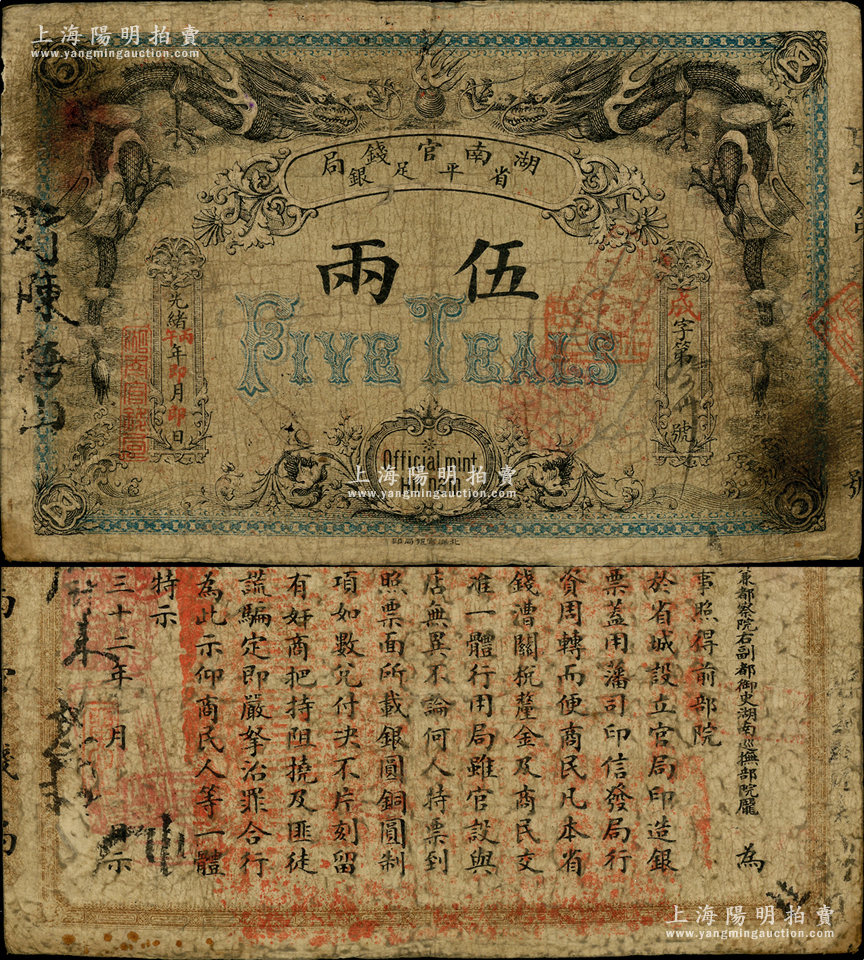 上海陽明拍賣
www.yangmingauction.com
上海陽明拍賣
www.yangmingauction.com
湖南官錢局
省平足銀
伍兩
FIVE TEALS
成字第
號
光緒丙午年即月即日
湖南官錢局
Official mint
上海陽明拍賣
www.yangmingauction.com
兼都察院右副都御史湖南巡撫部院龎 為
事照得前部院
於省城設立官局印造銀
票蓋用藩司印信發局行
資周轉而便商民凡本省
錢漕關稅釐金及商民交
准一體行用局雖官設與
店無異不論何人持票到
照票面所載銀圓銅圓制
項如數兌付决不片刻留
有奸商把持阻撓及匪徒
謊騙定即嚴拏治罪合行
為此示仰商民人等一體
特示
三十二年 月 日示
上海陽明拍賣
www.yangmingauction.com